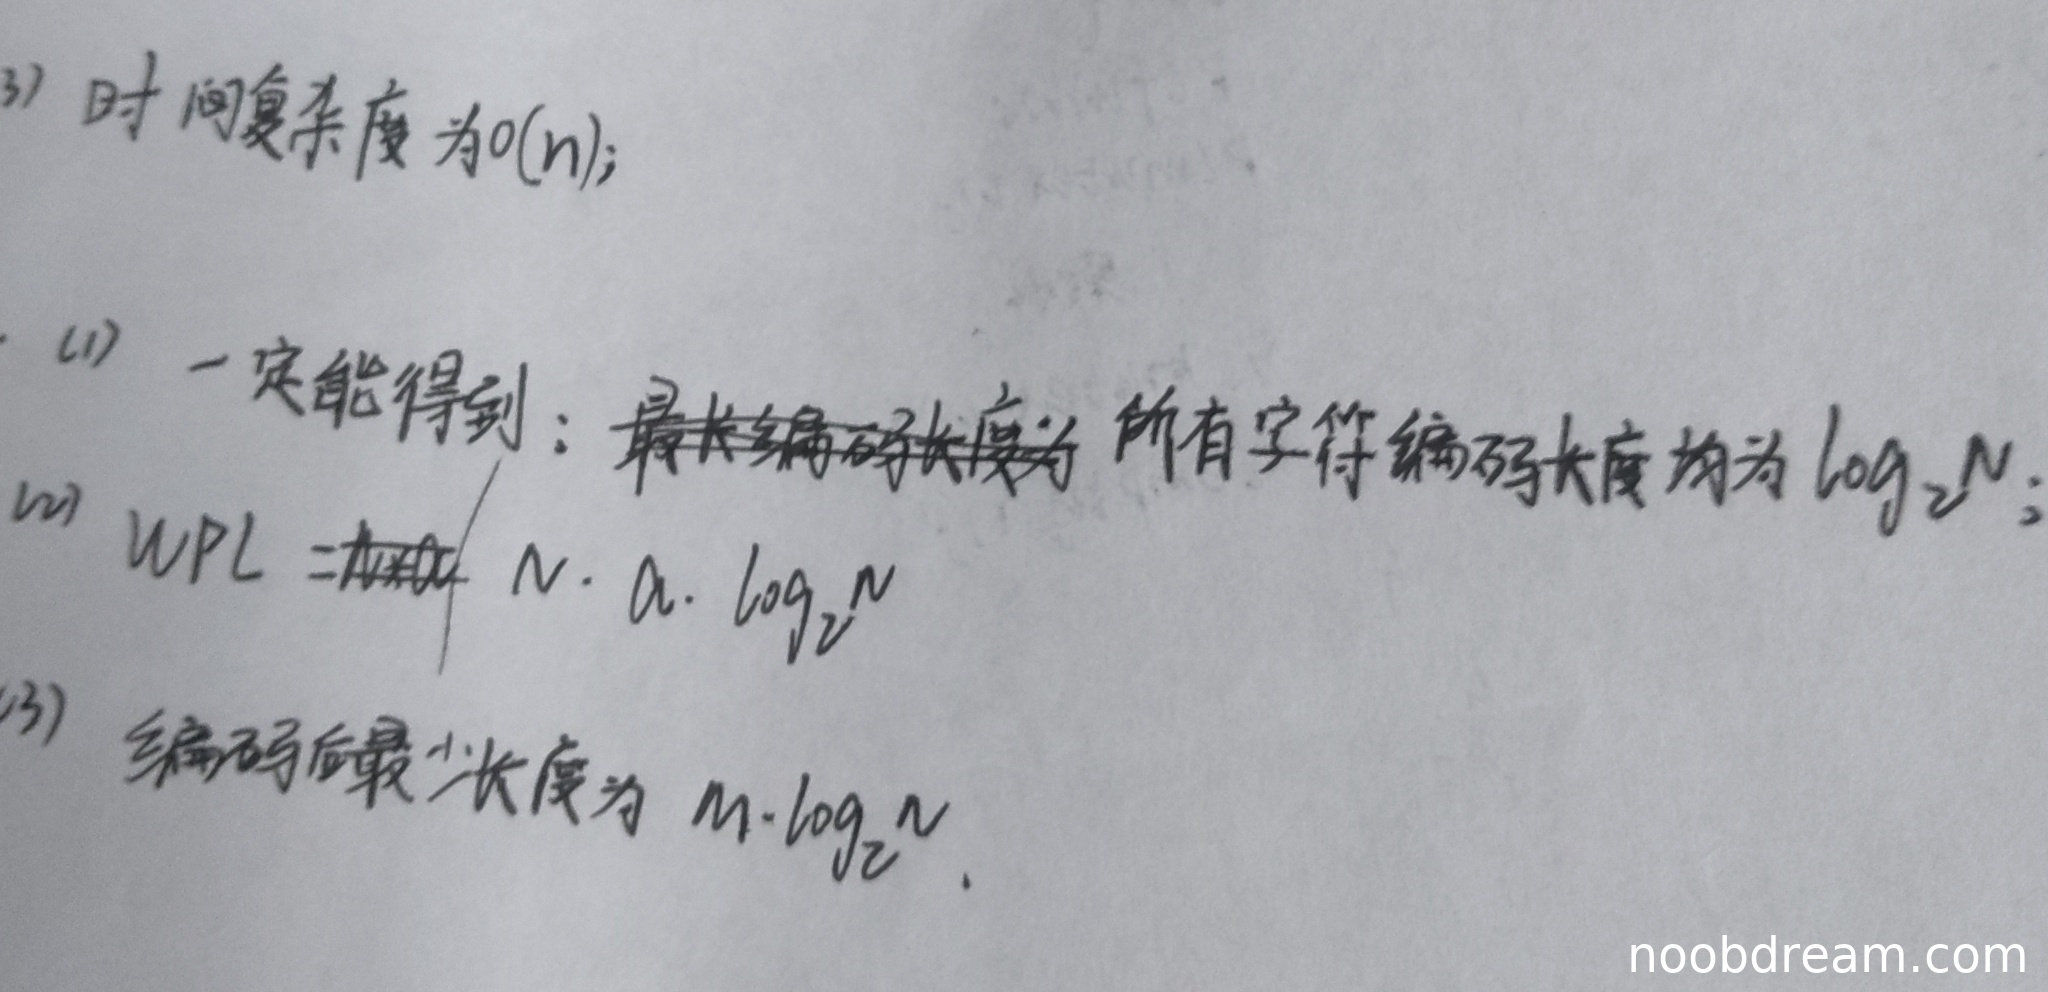 3) 时间复杂度为O(n);
(1) 一定能得到: 所有字符编码长度均为 log₂N;
(2) WPL = N · a · log₂N
(3) 编码后最少长度为 M·log₂N.
noobdream.com